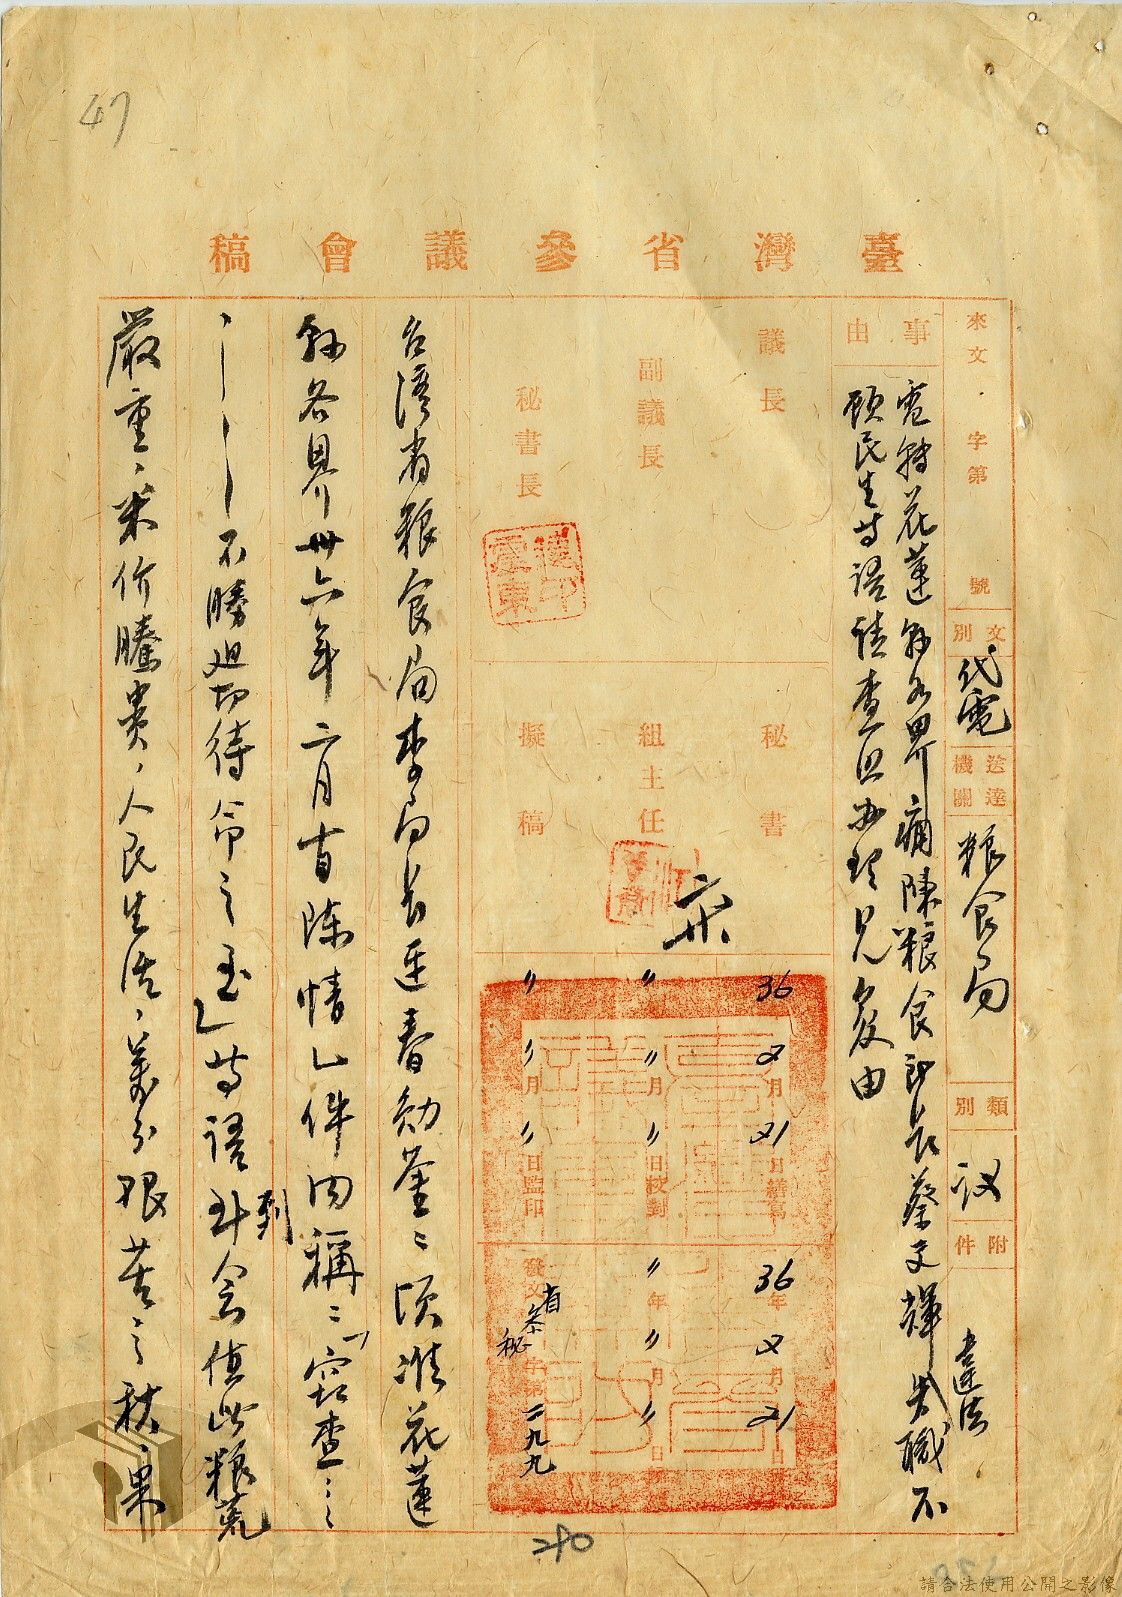 47
臺灣省參議會稿
來文 字第 號
文別 代電
送達機關 粮食局
類別 議
附件
事由
電轉花蓮縣各界痛陳粮食部長蔡文輝失職違法不
顧民生等語請查照辦理見復由
議長
副議長
秘書長
秘書
組主任
擬稿
36年2月21日繕寫
〃年〃月〃日校對
〃年〃月〃日監印
36年2月21日
〃年〃月〃日
發文 省參秘字第二九九
台灣省粮食局李局長連春勛鑒：頃准花蓮
縣各界卅六年二月 陳情乙件内稱：「窃查……
不勝迫切待命之至」等語到会值此粮荒
嚴重，米价騰貴，人民生活，萬分艱苦之秋，果
290
請合法使用公開之影像